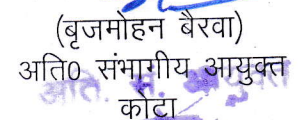 (बृजमोहन बैरवा)
अति0 संभागीय आयुक्त
कोटा